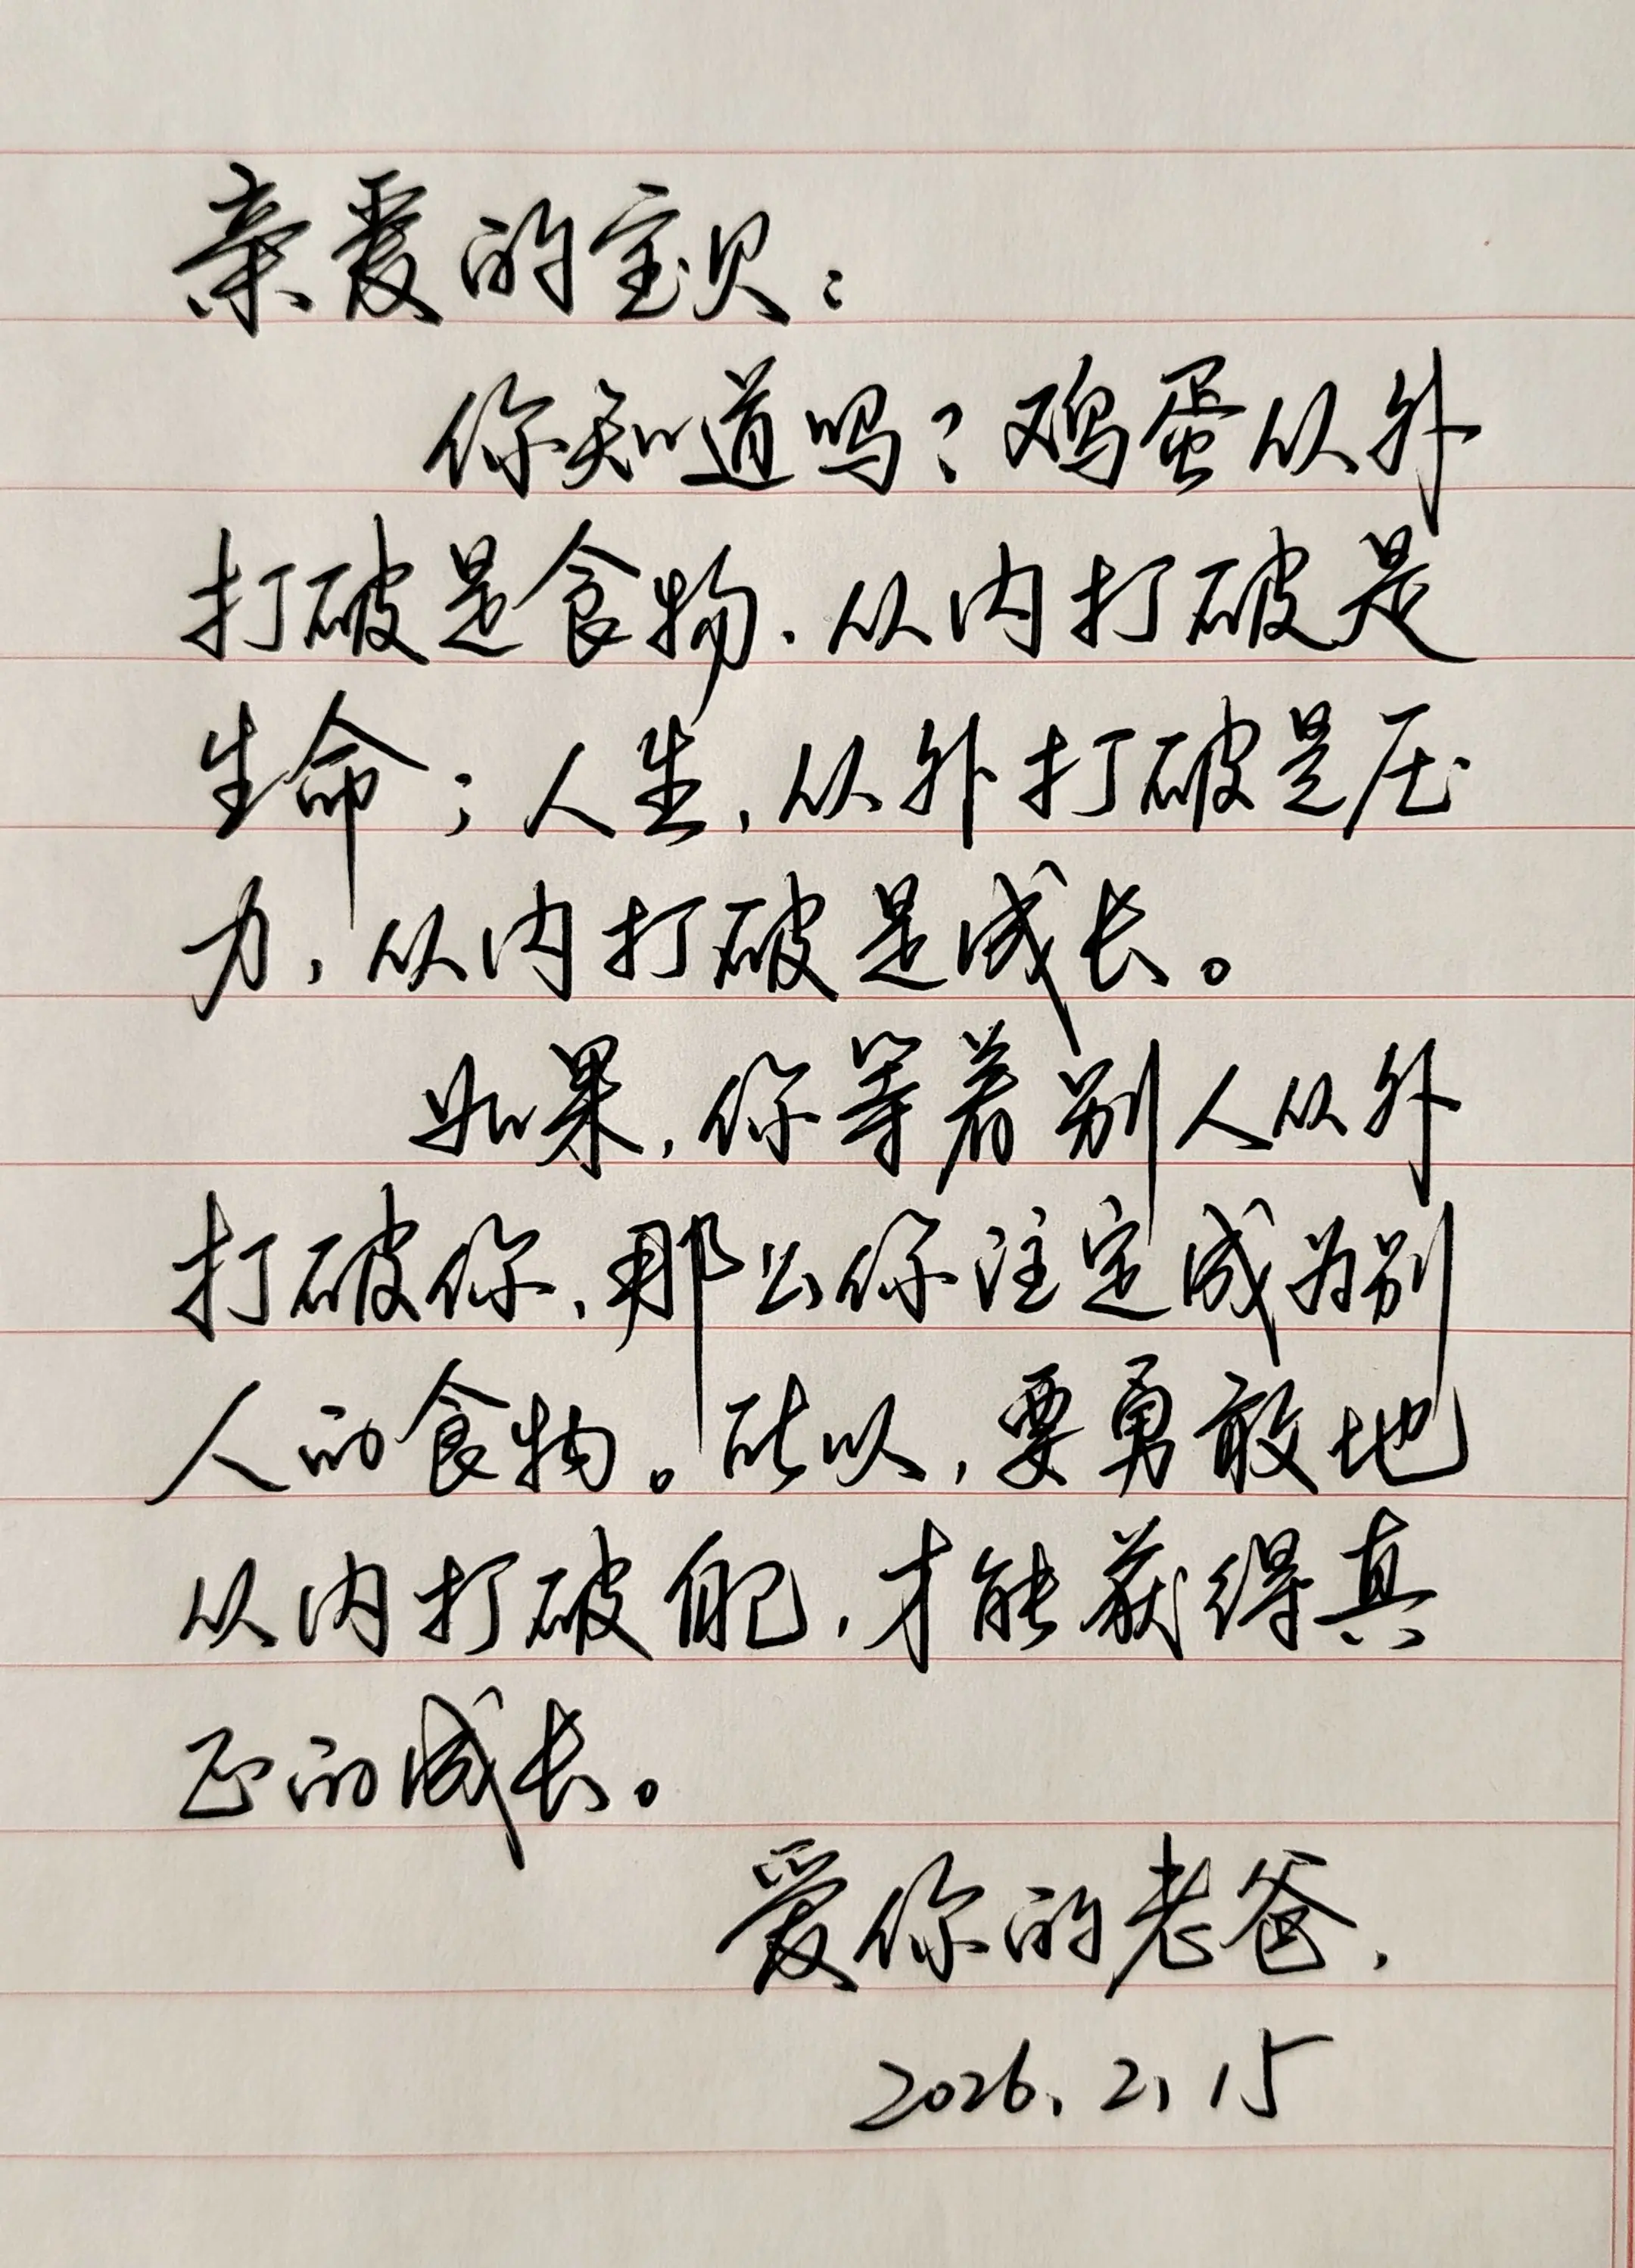 亲爱的宝贝：
你知道吗？鸡蛋从外
打破是食物，从内打破是
生命；人生，从外打破是压
力，从内打破是成长。
如果，你等着别人从外
打破你，那么你注定成为别
人的食物。所以，要勇敢地
从内打破自己，才能获得真
正的成长。
爱你的老爸，
2026.2.15